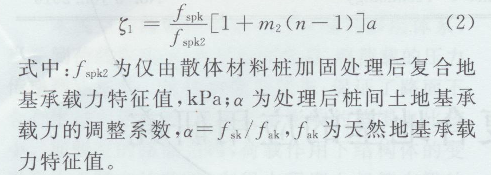 ζ₁ = f_spk / f_spk2 [1+m₂(n−1)]a (2)
式中:f_spk2为仅由散体材料桩加固处理后复合地
基承载力特征值,kPa;α 为处理后桩间土地基承
载力的调整系数,α=f_sk/f_ak,f_ak为天然地基承载
力特征值。